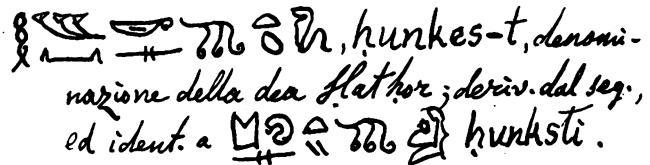 , ḥunkes-t, denomi-
nazione della dea Ḥatḥor; deriv. dal seg.,
ed ident. a ḥunksti.